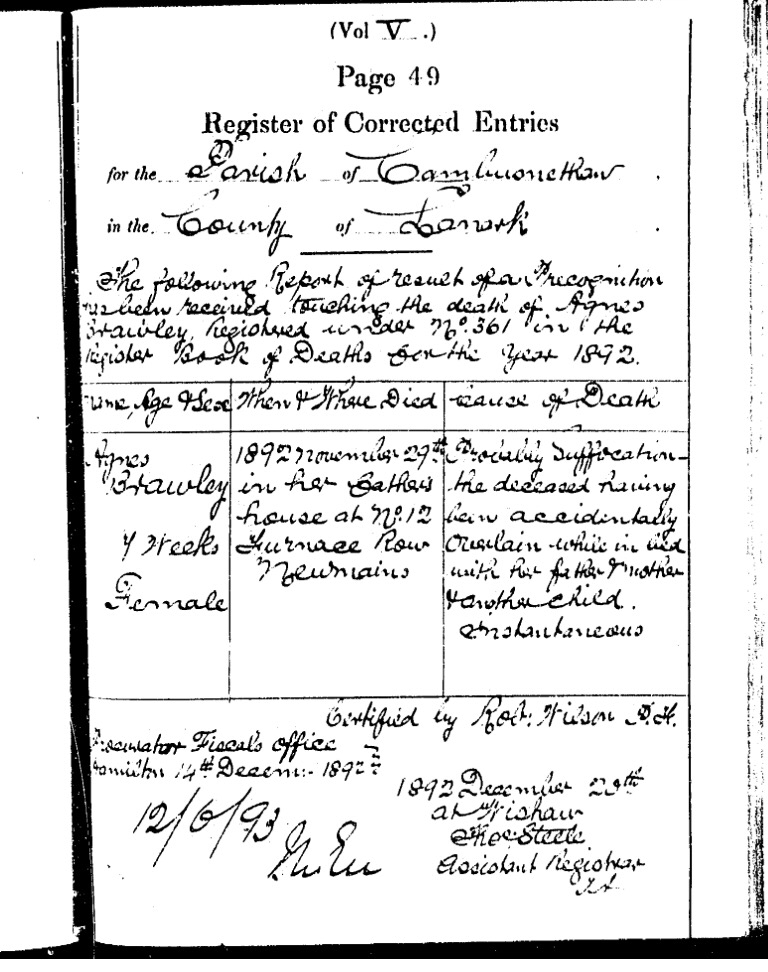 (Vol V.)
Page 49
Register of Corrected Entries
for the Parish of Cambusnethan
in the County of Lanark
The following Report of result of a Precognition
has been received touching the death of Agnes
Brawley, Registered under No. 361 in the
Register Book of Deaths for the Year 1892.
Name, Age & Sex When & Where Died Cause of Death
Agnes 1892 November 29th Probably Suffocation -
Brawley in her fathers the deceased having
house at No. 12 been accidentally
7 Weeks Furnace Row overlain while in bed
Newmains with her father & mother
Female & another child.
Instantaneous
Certified by Robt. Wilson P.F.
Procurator Fiscal's office
Hamilton 14th Decem: 1892
1892 December
at Wishaw
12/6/93 Thos Steele
Assistant Registrar